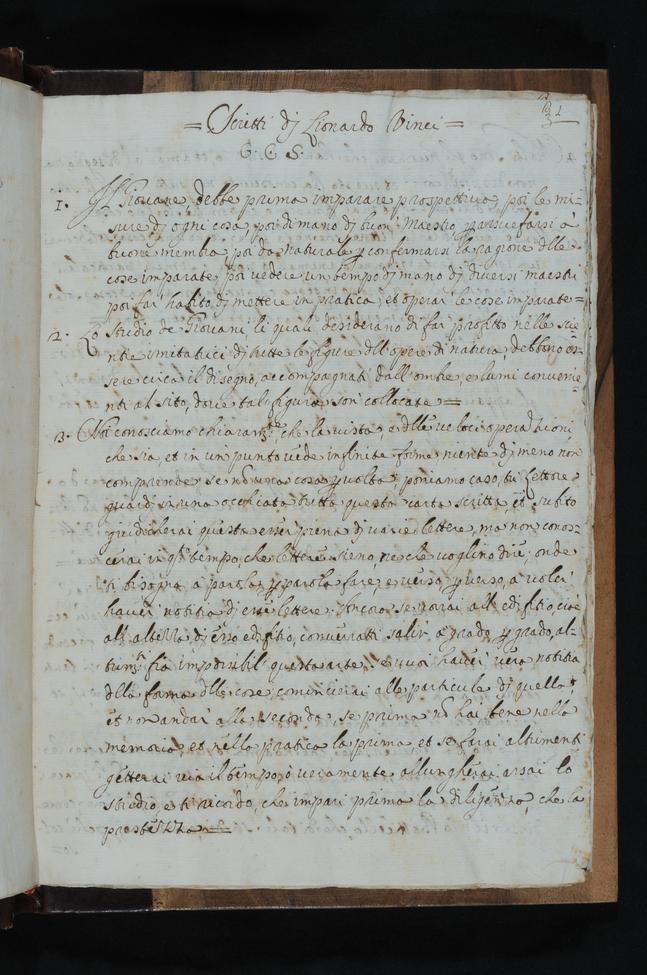 = Scritti dj Lionardo Vinci =
G. C. S.
1. Il Giovane debbe prima imparare prospettiva, poi le mi-
sure dj ogni cosa, poi di mano dj buon Maestro p assuefarsi à
buone membra, poi da naturale p confermarsi la ragione delle
cose imparate, poi vedere un tempo dj mano dj diversi maestri
poi far habito dj mettere in pratica, et operar le cose imparate =
2. Lo studio de Giovani, li quali desiderano di far profitto nelle scie
ntie imitatrici dj tutte le figure dell' opere di natura debbono es-
sere circa il disegno, accompagnati dall' ombre, e lumi convenie-
nti al sito, dove tali figure son collocate =
3. Noi conosciamo chiaram.te che la vista, è delle veloci operationi
che sia, et in un punto vede infinite forme, niente dj meno non
comprende se nò una cosa p volta, poniamo caso, tu lettore
guardi in una occhiata tutta questa carta scritta, et subito
giudicherai questa esser piena dj varie lettere, ma non conos-
cerai in q.to tempo, che lettere sieno, ne che voglino dire, onde
ti bisogna à parola p parola farne, e verso p verso, a voler
haver notitia d esse lettere. Ancora se vorrai all edifitio, cioè
all altezza dj esso edifitio, converratti salir, à grado p grado, al-
trim.ti fia impossibil questa arte, se vuoi haver vera notitia
della forma delle cose comincierai alle particule dj quella,
et non andar alla seconda, se prima nò hai bene nella
memoria, et nella pratica la prima et se farai altrimenti
getterai via il tempo, ò veramente allungherai assai lo
studio, e ti ricordo, che impari prima la diligenza, che la
prestezza =